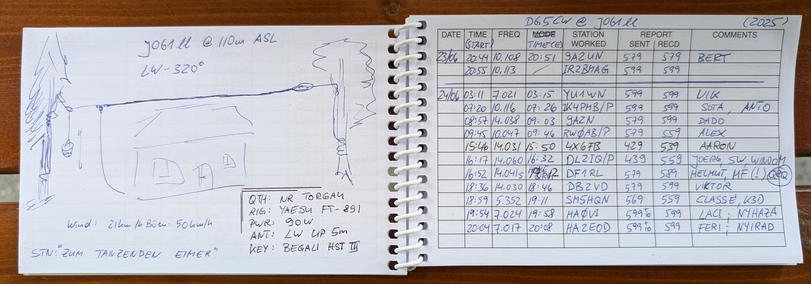 JO61ll @ 110m ASL
LW-320°
Wind: 21km/h Böen: 50km/h
STN: "ZUM TANZENDEN EIMER"
QTH: NR TORGAU
RIG: YAESU FT-891
PWR: 90W
ANT: LW UP 5m
KEY: BEGALI HST III
DG5CW @ JO61ll (2025)
DATE TIME (START) FREQ MODE TIME(E) STATION WORKED REPORT SENT RECD COMMENTS
23/06 20:44 10.108 20:51 9A2UN 579 579 BERT
20:55 10.113 / IR2BHAG 599 599
24/06 03:11 7.021 03:15 YU1WN 599 599 VIK
07:20 10.116 07:26 IK4PMB/P 599 599 SOTA, ANTO
08:57 14.038 09:03 9A2N 579 599 DADO
09:45 10.047 09:46 RW0AB/P 579 559 ALEX
15:46 14.031 15:50 4X6FB 429 539 AARON
16:17 14.060 16:32 DL2IQ/P 439 559 JOERG, 5W, WINDOM
16:52 14.045 DF1RL 579 589 HELMUT, MF (!) QRQ
18:36 14.030 18:46 DB2VD 579 599 VIKTOR
18:59 5.352 19:11 SM5HQN 569 559 CLASSE, K3D
19:54 7.024 19:58 HA0VI 599 599 LACI; NYHAZA
20:04 7.017 20:08 HA2EOD 599 599 FERI; NYIRAD